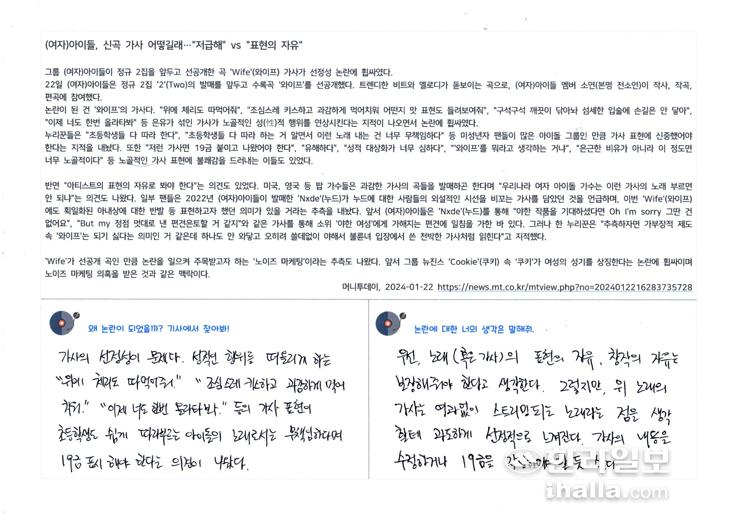 (여자)아이들, 신곡 가사 어떻길래…"저급해" vs "표현의 자유"
그룹 (여자)아이들이 정규 2집을 앞두고 선공개한 곡 'Wife'(와이프) 가사가 선정성 논란에 휩싸였다.
22일 (여자)아이들은 정규 2집 '2'(Two)의 발매를 앞두고 수록곡 '와이프'를 선공개했다. 트렌디한 비트와 멜로디가 돋보이는 곡으로, (여자)아이들 멤버 소연(본명 전소연)이 작사, 작곡,
편곡에 참여했다.
논란이 된 건 '와이프'의 가사다. "위에 체리도 따먹어줘", "조심스레 키스하고 과감하게 먹어치워 어떤지 맛 표현도 들려보여줘", "구석구석 깨끗이 닦아놔 섬세한 입술에 손길은 안 닿아",
"이제 너도 한번 올라타봐" 등 은유가 섞인 가사가 노골적인 성(性)적 행위를 연상시킨다는 지적이 나오면서 논란에 휩싸였다.
누리꾼들은 "초등학생들 다 따라 한다", "초등학생들 다 따라 하는 거 알면서 이런 노래 내는 건 너무 무책임하다" 등 미성년자 팬들이 많은 아이돌 그룹인 만큼 가사 표현에 신중했어야
한다는 지적을 내놨다. 또한 "저런 가사면 19금 붙이고 나왔어야 한다", "유해하다", "성적 대상화가 너무 심하다", "'와이프'를 뭐라고 생각하는 거냐", "은근한 비유가 아니라 이 정도면
너무 노골적이다" 등 노골적인 가사 표현에 불쾌감을 드러내는 이들도 있었다.
반면 "아티스트의 표현의 자유로 봐야 한다"는 의견도 있었다. 미국, 영국 등 팝 가수들은 과감한 가사의 곡들을 발매하곤 한다며 "우리나라 여자 아이돌 가수는 이런 가사의 노래 부르면
안 되냐"는 의견도 나왔다. 일부 팬들은 2022년 (여자)아이들이 발매한 'Nxde'(누드)가 누드에 대한 사람들의 외설적인 시선을 비꼬는 가사를 담았던 것을 언급하며, 이번 'Wife'(와이프)
에도 획일화된 아내상에 대한 반발 등 표현하고자 했던 의미가 있을 거라는 추측을 내놨다. 앞서 (여자)아이들은 'Nxde'(누드)를 통해 "야한 작품을 기대하셨다면 Oh I'm sorry 그딴 건
없어요", "But my 정점 멋대로 낸 편견은토할 거 같지"와 같은 가사를 통해 소위 '야한 여성'에게 가해지는 편견에 일침을 가한 바 있다. 그러나 한 누리꾼은 "추측하자면 가부장적 제도
속 '와이프'는 되기 싫다는 의미인 거 같은데 하나도 안 와닿고 오히려 쓸데없이 야해서 불륜녀 입장에서 쓴 천박한 가사처럼 읽힌다"고 지적했다.
'Wife'가 선공개 곡인 만큼 논란을 일으켜 주목받고자 하는 '노이즈 마케팅'이라는 추측도 나왔다. 앞서 그룹 뉴진스 'Cookie'(쿠키) 속 '쿠키'가 여성의 성기를 상징한다는 논란에 휩싸이며
노이즈 마케팅 의혹을 받은 것과 같은 맥락이다.
머니투데이, 2024-01-22 https://news.mt.co.kr/mtview.php?no=2024012216283735728
왜 논란이 되었을까? 기사에서 찾아봐!
가사의 선정성이 문제다. 성적인 행위를 떠올리게 하는
"위에 체리도 따먹어줘." "조심스레 키스하고 과감하게 먹어
치워." "이제 너도 한번 올라타봐." 등의 가사 표현이
초등학생도 쉽게 따라부르는 아이돌의 노래로서는 무책임하다며
19금 표시 해야 한다는 의견이 나왔다.
논란에 대한 너의 생각은 말해줘.
우선, 노래(혹은 가사)의 표현의 자유, 창작의 자유는
보장해줘야 한다고 생각한다. 그렇지만, 위 노래의
가사는 여과없이 스트리밍되는 노래라는 점을 생각
할때 과도하게 선정적으로 느껴진다. 가사의 내용을
수정하거나 19금을 해야 할 듯 싶다
한라일보
ihalla.com